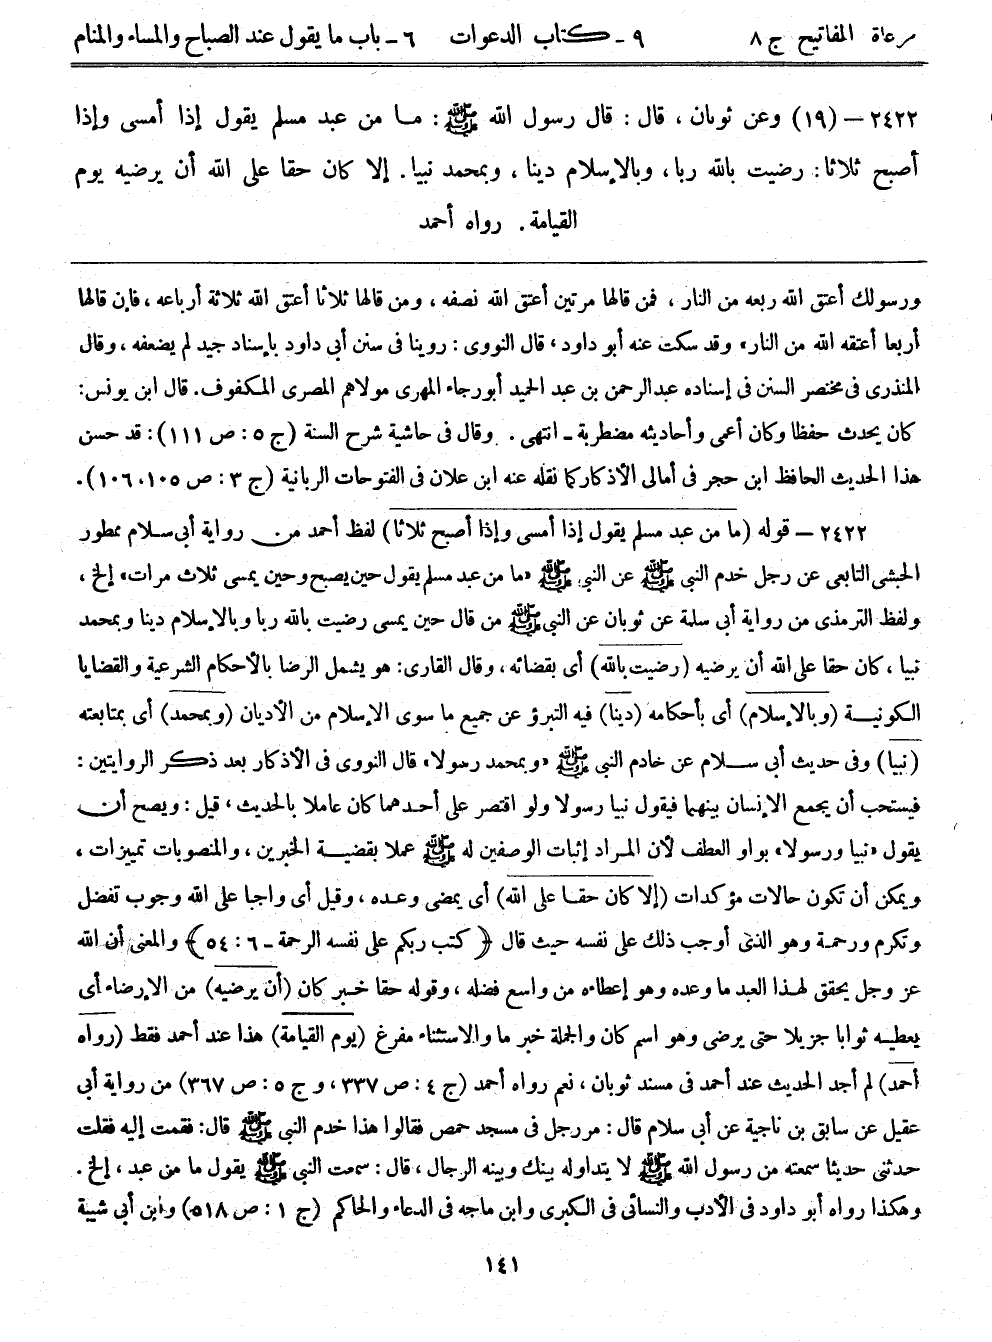 مرعاة المفاتيح ج ٨ ٩ ـ كتاب الدعوات ٦ ـ باب ما يقول عند الصباح والمساء والمنام
٢٤٢٢ – (١٩) وعن ثوبان ، قال : قال رسول الله ﷺ : ما من عبد مسلم يقول إذا أمسى وإذا
أصبح ثلاثا : رضيت بالله ربا ، وبالإسلام دينا ، وبمحمد نبيا . إلا كان حقا على الله أن يرضيه يوم
القيامة . رواه أحمد
ورسولك أعتق الله ربعه من النار ، فمن قالها مرتين أعتق الله نصفه ، ومن قالها ثلاثا أعتق الله ثلاثة أرباعه ، فإن قالها
أربعا أعتقه الله من النار» وقد سكت عنه أبو داود ، قال النووى : روينا فى سنن أبى داود بإسناد جيد لم يضعفه ، وقال
المنذرى فى مختصر السنن فى إسناده عبدالرحمن بن عبد الحميد أبو رجاء المهرى مولاهم المصرى المكفوف . قال ابن يونس :
كان يحدث حفظا وكان أعمى وأحاديثه مضطربة ـ انتهى . وقال فى حاشية شرح السنة (ج ٥ : ص ١١١) : قد حسن
هذا الحديث الحافظ ابن حجر فى أمالى الأذكار كما نقله عنه ابن علان فى الفتوحات الربانية (ج ٣ : ص ١٠٥، ١٠٦) .
٢٤٢٢ – قوله (ما من عبد مسلم يقول إذا أمسى وإذا أصبح ثلاثا) لفظ أحمد من رواية أبى سلام ممطور
الحبشى التابعى عن رجل خدم النبى ﷺ عن النبى ﷺ «ما من عبد مسلم يقول حين يصبح وحين يمسى ثلاث مرات» إلخ ،
ولفظ الترمذى من رواية أبى سلمة عن ثوبان عن النبى ﷺ من قال حين يمسى رضيت بالله ربا وبالإسلام دينا وبمحمد
نبيا ، كان حقا على الله أن يرضيه (رضيت بالله) أى بقضائه ، وقال القارى : هو يشمل الرضا بالأحكام الشرعية والقضايا
الكونية (وبالإسلام) أى بأحكامه (دينا) فيه التبرؤ عن جميع ما سوى الإسلام من الأديان (وبمحمد) أى بمتابعته
(نبيا) وفى حديث أبى سلام عن خادم النبى ﷺ «وبمحمد رسولا» قال النووى فى الأذكار بعد ذكر الروايتين :
فيستحب أن يجمع الإنسان بينهما فيقول نبيا رسولا ولو اقتصر على أحدهما كان عاملا بالحديث ، قيل : ويصح أن
يقول «نبيا ورسولا» بواو العطف لأن المراد إثبات الوصفين له ﷺ عملا بقضية الخبرين ، والمنصوبات تمييزات ،
ويمكن أن تكون حالات مؤكدات (إلا كان حقا على الله) أى يمضى وعده ، وقيل أى واجبا على الله وجوب تفضل
وتكرم ورحمة وهو الذى أوجب ذلك على نفسه حيث قال ﴿كتب ربكم على نفسه الرحمة ـ ٦ : ٥٤﴾ والمعنى أن الله
عز وجل يحقق لهذا العبد ما وعده وهو إعطاءه من واسع فضله ، وقوله حقا خبر كان (أن يرضيه) من الإرضاء أى
يعطيه ثوابا جزيلا حتى يرضى وهو اسم كان والجملة خبر ما والاستثناء مفرغ (يوم القيامة) هذا عند أحمد فقط (رواه
أحمد) لم أجد الحديث عند أحمد فى مسند ثوبان ، نعم رواه أحمد (ج ٤ : ص ٣٣٧ ، و ج ٥ : ص ٣٦٧) من رواية أبى
عقيل عن سابق بن ناجية عن أبى سلام قال : مر رجل فى مسجد حمص فقالوا هذا خدم النبى ﷺ قال : فقمت إليه فقلت
حدثنى حديثا سمعته من رسول الله ﷺ لا يتداوله بينك وبينه الرجال ، قال : سمعت النبى ﷺ يقول ما من عبد ، إلخ .
وهكذا رواه أبو داود فى الأدب والنسائى فى الكبرى وابن ماجه فى الدعاء والحاكم (ج ١ : ص ٥١٨) وابن أبى شيبة
١٤١